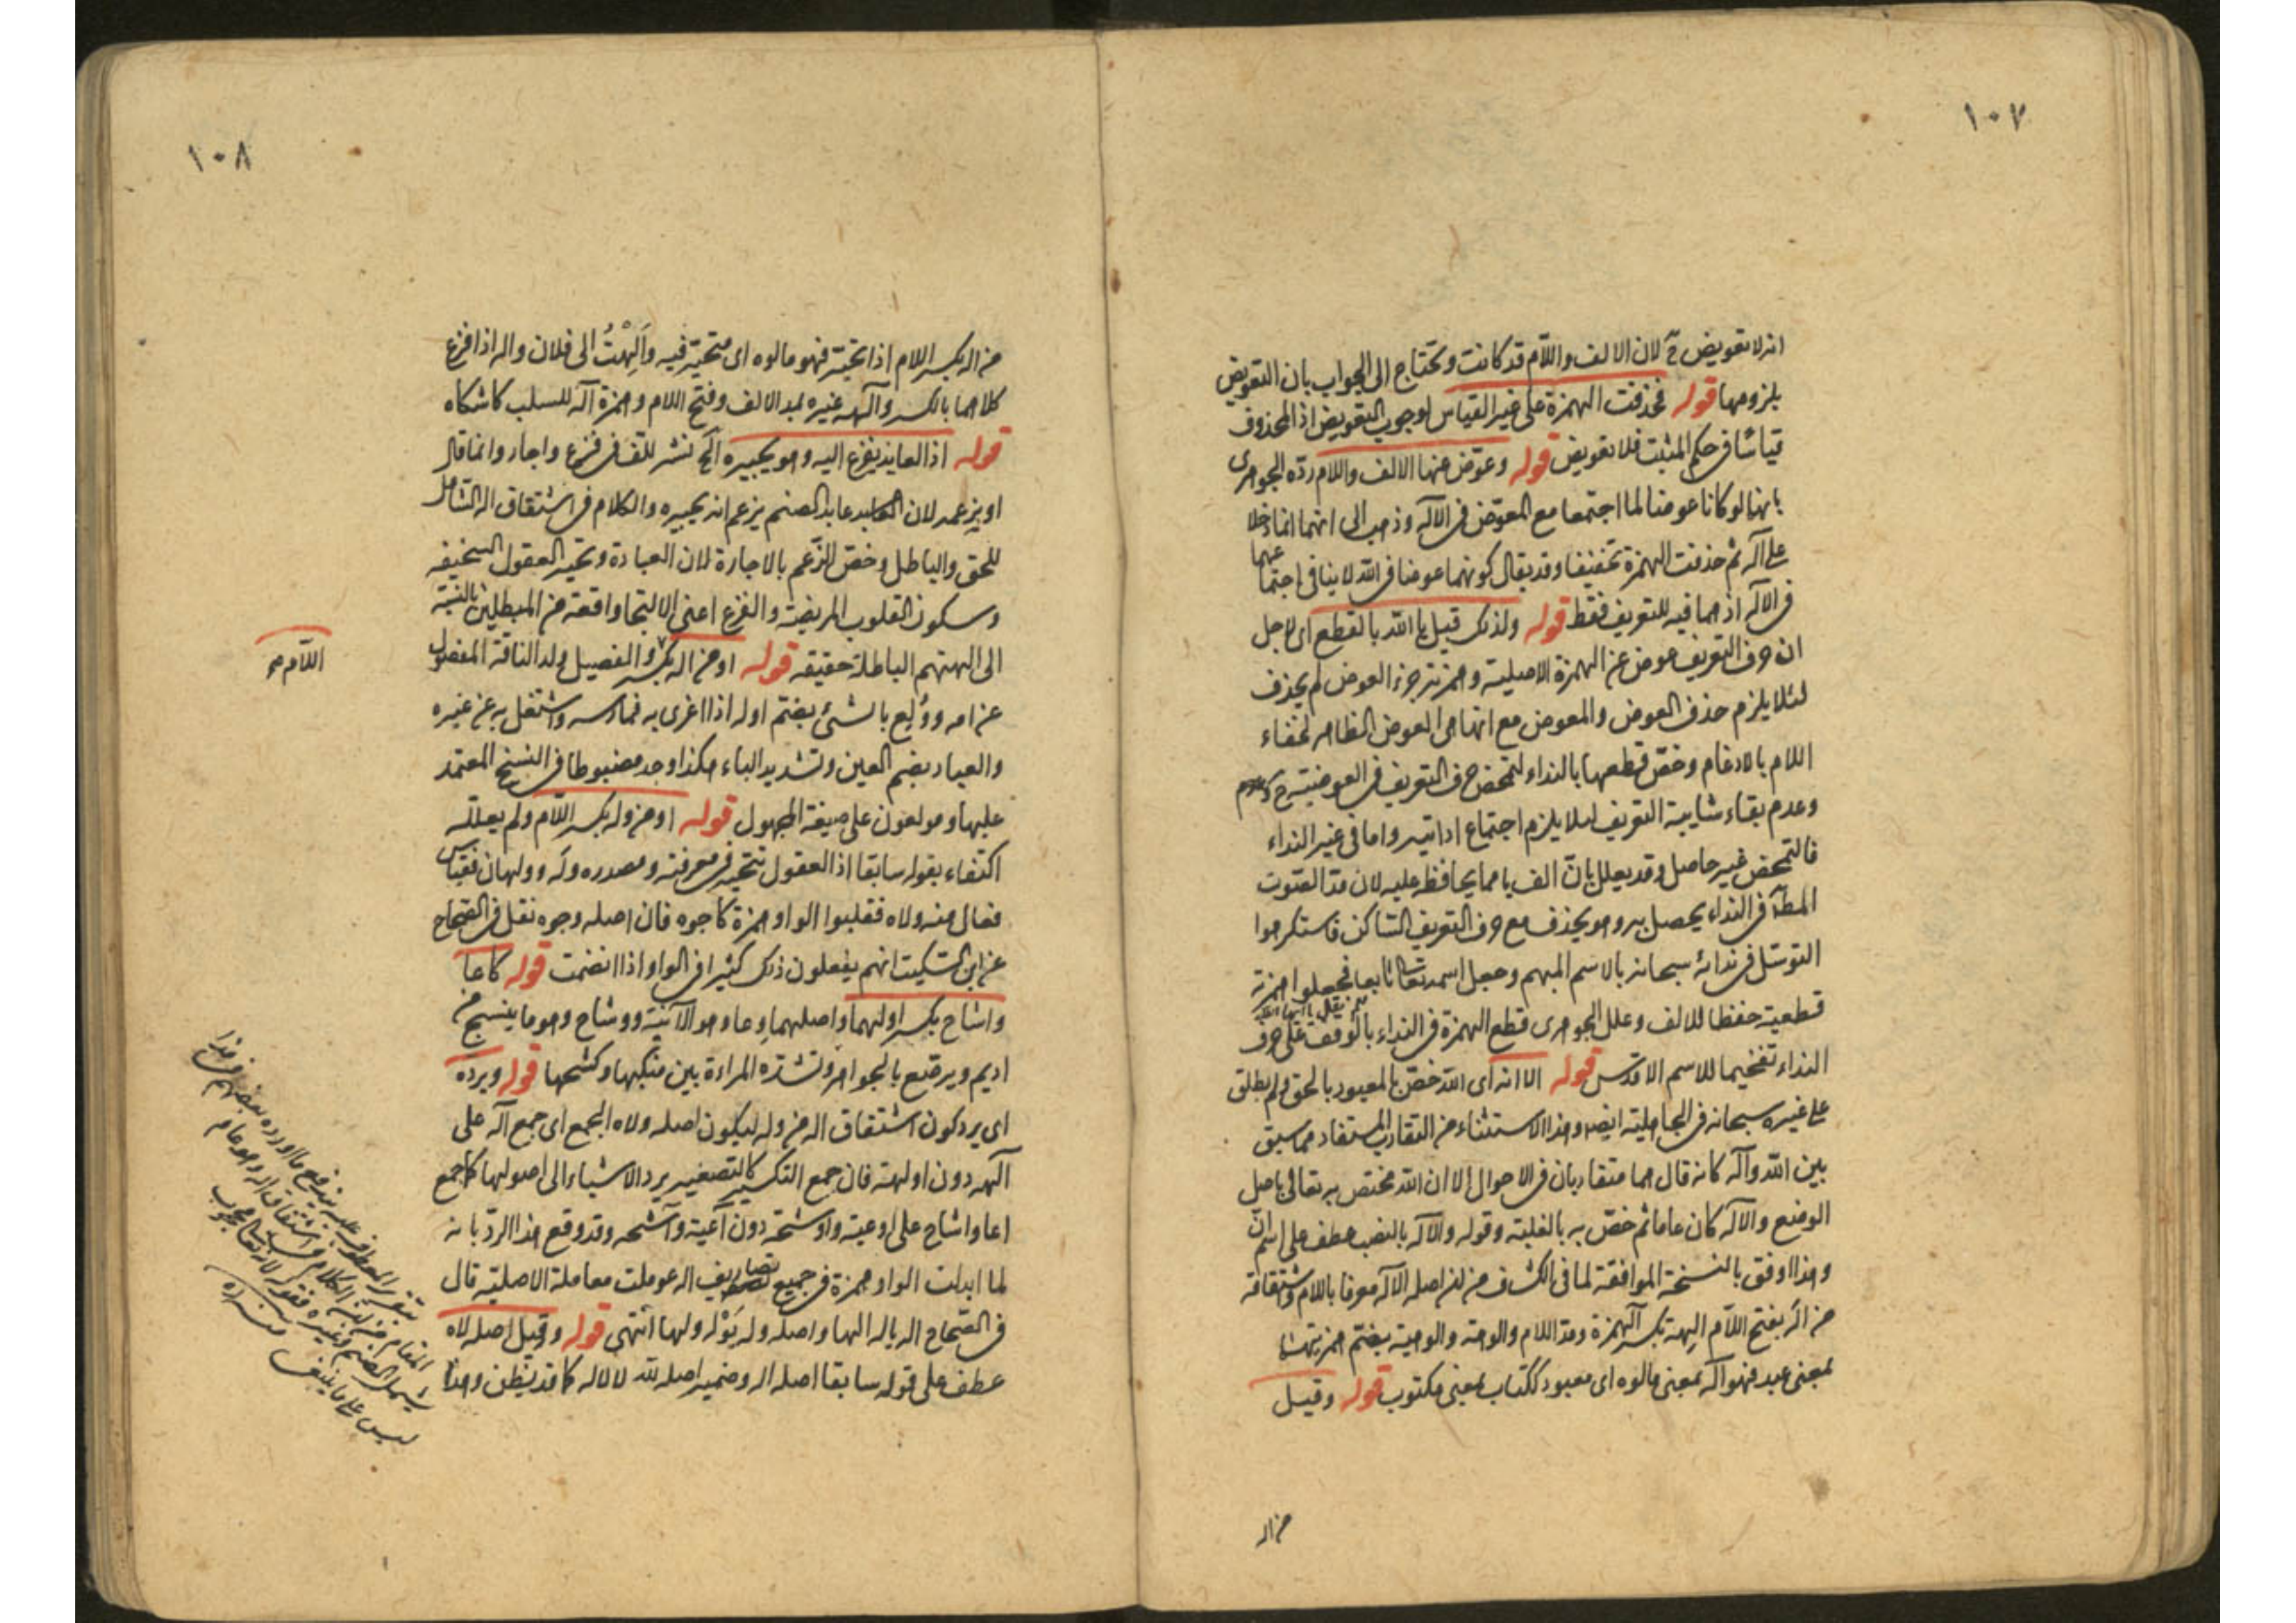 ١٠٧
انه لا تعويض ح لان الالف واللام قد كانت وتحتاج الى الجواب بان التعويض
بلزومها قوله فحذفت الهمزة على غير القياس لوجوب التعويض اذ المحذوف
قياسًا فى حكم المثبت فلا تعويض قوله وعوّض عنها الالف واللام ردّه الجوهرى
بانهما لو كانا عوضا لما اجتمعا مع المعوّض فى الاله وذهب الى انهما انما دخلا
على اله ثم حذفت الهمزة تخفيفا وقد يقال كونهما عوضا فى الله لا ينافى اجتماعهما
فى الاله اذ هما فيه للتعريف فقط قوله ولذلك قيل يا الله بالقطع اى لاجل
ان حرف التعريف عوض عن الهمزة الاصلية وهمزته جزء العوض لم يحذف
لئلا يلزم حذف العوض والمعوض مع انها هى العوض الظاهر لخفاء
اللام بالادغام وخصّ قطعها بالنداء لتمحض حرف التعريف فى العوضية ح
وعدم بقاء شايبة التعريف لئلا يلزم اجتماع اداتيه واما فى غير النداء
فالتمحض غير حاصل وقد يعلل بانّ الف يا مما يحافظ عليه لان مدّ الصوت
المط فى النداء يحصل به وهو يحذف مع حرف التعريف الساكن فاستكرهوا
التوسّل فى ندائه سبحانه بالاسم المبهم وجعل اسمه تعالى تابعا فجعلوا همزته
قطعية حفظا للالف وعلل الجوهرى قطع الهمزة فى النداء بالوقف على حرف
النداء تفخيما للاسم الاقدس قوله الا انه اى الله خصّ بالمعبود بالحق ولم يطلق
على غيره سبحانه فى الجاهلية ايضا وهذا الاستثناء من التقارب المستفاد مما سبق
بين الله واله كانه قال هما متقاربان فى الاحوال الا ان الله مختص به تعالى باصل
الوضع والاله كان عاما ثم خصّ به بالغلبة وقوله والاله بالنصب عطف على اسم انّ
وهذا اوفق بالنسخة الموافقة لما فى الكشاف من ان اصله الاله معرفا باللام واشتقاقه
من اله بفتح اللام الهة بكسر الهمزة ومدّ اللام والوهة والوهية بضم همزتهما
بمعنى عبد فهو اله بمعنى مالوه اى معبود ككتاب بمعنى مكتوب قوله وقيل
من اله
١٠٨
من اله بكسر اللام اذا تحيّر فهو مالوه اى متحيّر فيه واَلِهْتُ الى فلان واله اذا فزع
كلاهما بالكسر وآلهه غيره بمد الالف وفتح اللام وهمزة آله للسلب كاشكاه
قوله اذ العايذ يفزع اليه وهو يجيره الخ نشر للف فى فزع واجار وانما قال
او بزعمه لان العابد عابد الصنم يزعم انه يجيره والكلام فى اشتقاق اله الشامل
للحق والباطل وخصّ الزّعم بالاجارة لان العبادة وتحيّر العقول السخيفة
وسكون القلوب المريضة والفزع اعنى الالتجا واقعة من المبطلين بالنسبة
الى الهتهم الباطلة حقيقة قوله او من اله بكسر والفصيل ولد الناقة المفصول
اللام صح
عن امه ووُلِع بالشئ بضم اوله اذا اغرى به فمارسه واشتغل به عن غيره
والعباد بضم العين وتشديد الباء هكذا وجد مضبوطا فى النسخ المعتمد
عليها ومولعون على صيغة المجهول قوله او من وله بكسر اللام ولم يعلله
اكتفاء بقوله سابقا اذ العقول تتحير فى معرفته ومصدره وله وولهان فقياس
فعال منه ولاه فقلبوا الواو همزة كاجوه فان اصله وجوه نقل فى الصحاح
عن ابن السكيت انهم يفعلون ذلك كثيرا فى الواو اذا انضمت قوله كاعا
واشاح بكسر اولهما واصلهما وعا وهو الآنية ووشاح وهو ما ينسج من
اديم ويرصّع بالجواهر وتشده المراءة بين منكبها وكشحها قوله ويرده
اى يرد كون اشتقاق اله من وله ليكون اصله ولاه الجمع اى جمع اله على
آلهه دون اولهة فان جمع التكسير كالتصغير يرد الاشياء الى اصولها كما جمع
اعا واشاح على اوعية واوشحة دون آعية وآشحه وقد وقع هذا الردّ بانه
لما ابدلت الواو همزة فى جميع تصاريف اله عوملت معاملة الاصلية قال
فى الصّحاح اله ياله الها واصله وله يَوْله ولها انتهى قوله وقيل اصله لاه
عطف على قوله سابقا اصله اله وضمير اصله لله لا لاله كما قد يظن وهذا